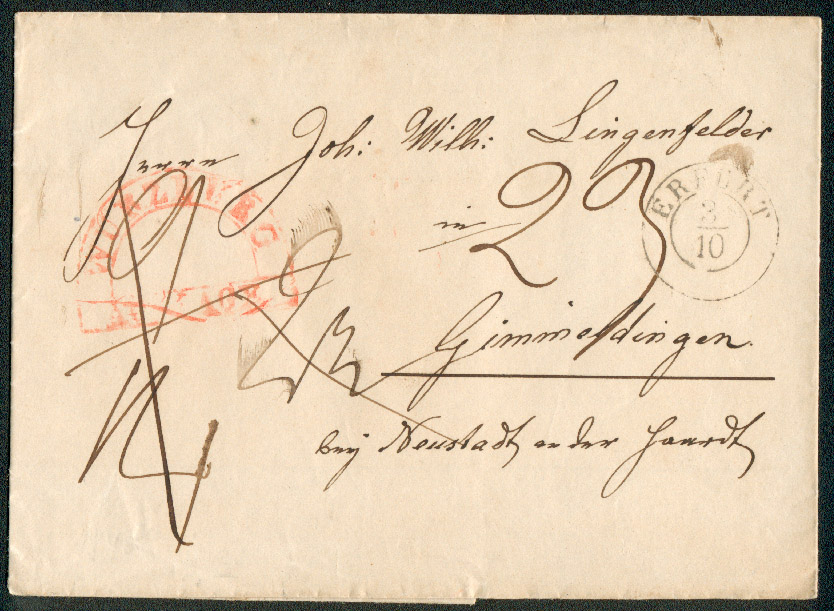 Herrn Joh: Wilh: Lingenfelder
in
23
Gimmeldingen.
bey Neustadt an der Haardt
ERFURT
3
10